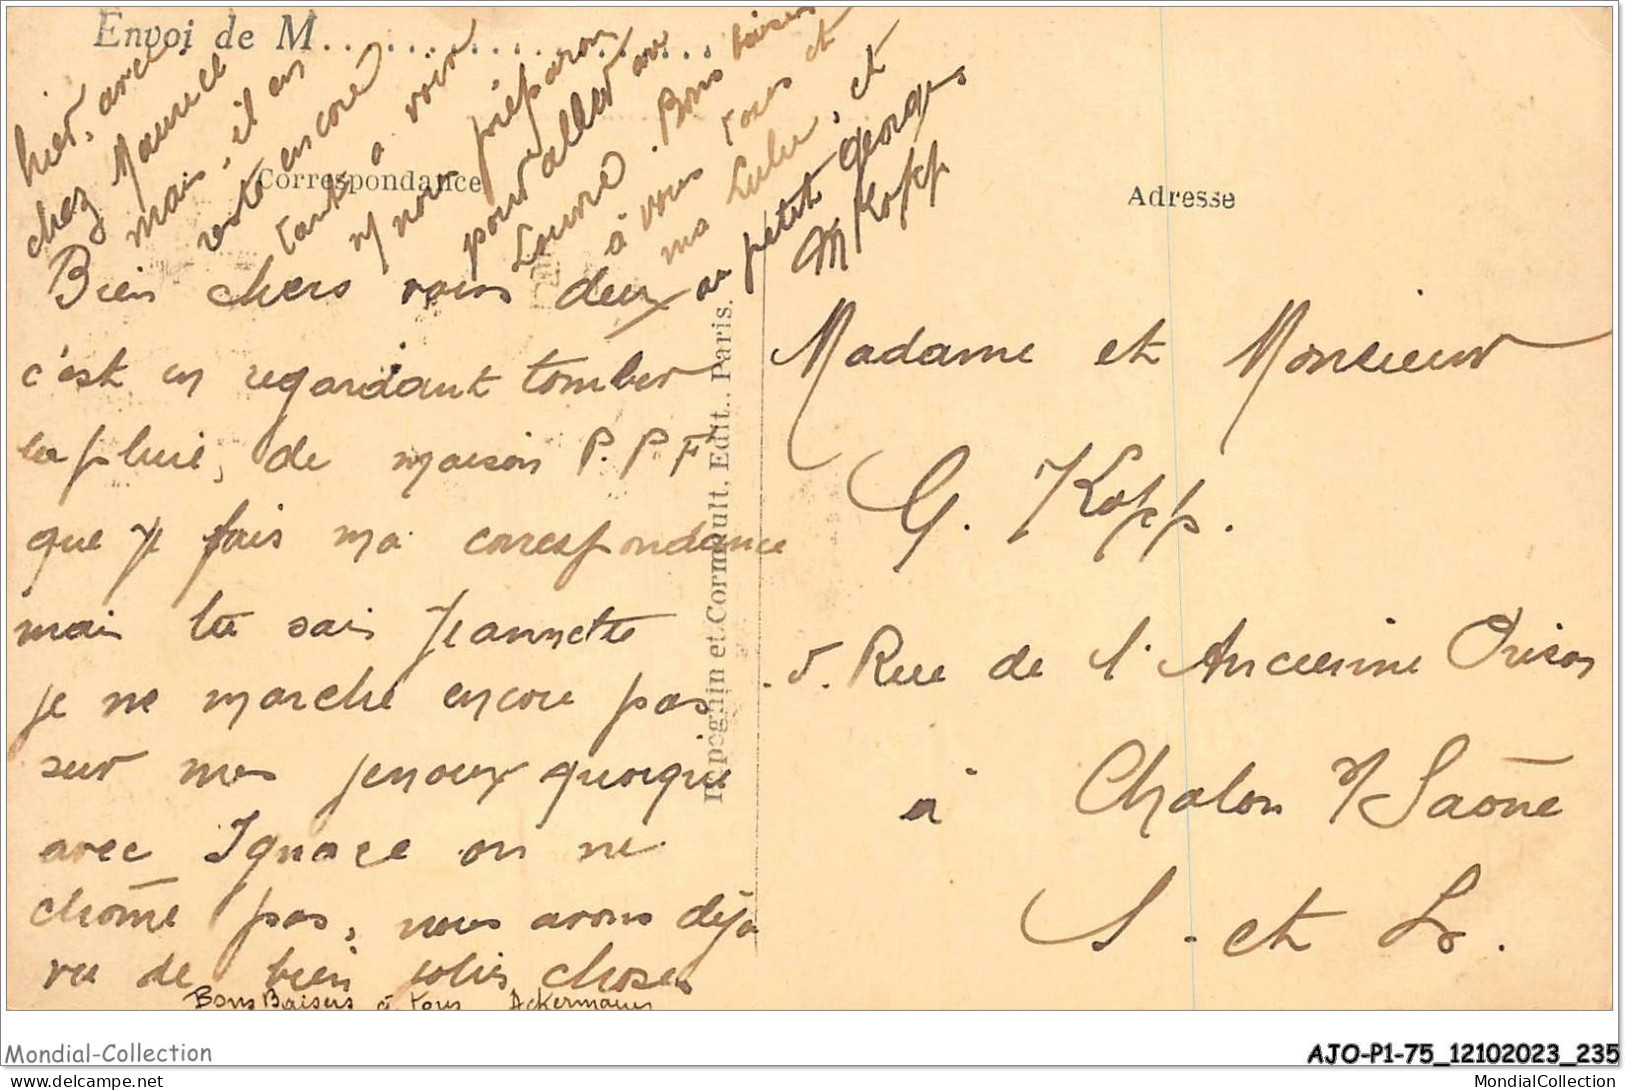 Envoi de M......................
Correspondance
Adresse
Bien chers vous deux
c'est en regardant tomber
la pluie, de maison P.P.F
que je fais ma correspondance
mais tu sais Jeannette
je ne marche encore pas
sur mes jenoux quoique
avec Ignace on ne
chôme pas, nous avons déjà
vu de bien jolies choses
hier, avec
chez Maurice
mais, il en
reste encore
tant a voir
n/ nous préparons
pour aller au
Louvre. Bons baisers
à vous tous et
ma Lulu, et
au petit Georges
M Kopp
Bons Baisers à tous Ackermann
Hippeghin et Cormault, Edit., Paris.
Madame et Monsieur
G. Kopp.
5. Rue de l'Ancienne Prison
à Chalon s/Saône
S. et L.
Mondial-Collection
AJO-P1-75_12102023_235
delcampe.net
MondialCollection